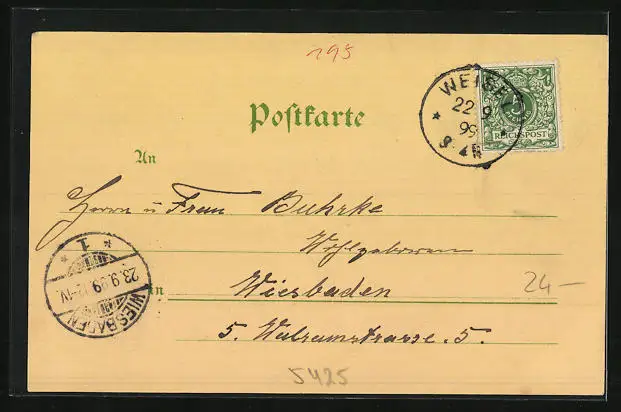 195
WEISE
22 9
99
3-4N
REICHSPOST
Postkarte
An
Herrn u Frau Buhrke
Wohlgeboren
in Wiesbaden
5. Walramstrasse. 5.
WIESBADEN
23.9.99. 12-1V.
* 1 *
24 —
5425